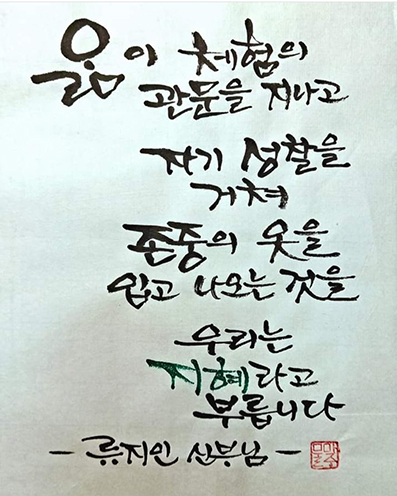 앎이 체험의
관문을 지나고
자기 성찰을
거쳐
존중의 옷을
입고 나오는 것을
우리는
지혜라고
부릅니다
- 류지인 신부님 -